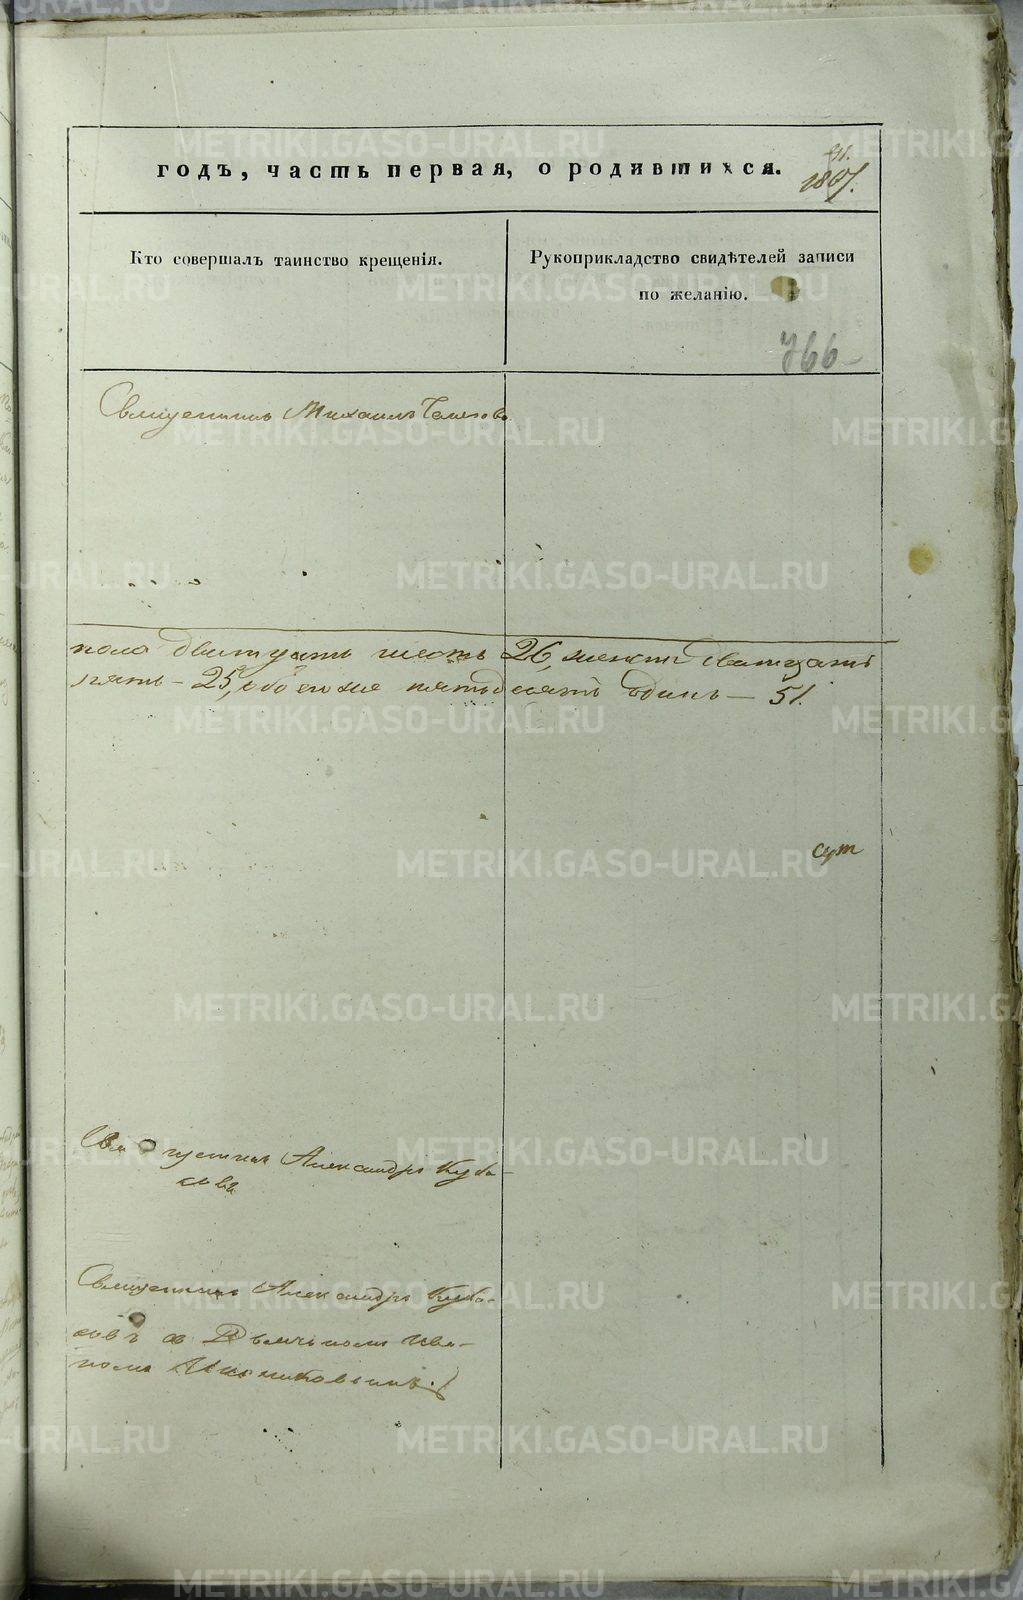 годъ, часть первая, о родившихся.
Кто совершалъ таинство крещенія.
Рукоприкладство свидѣтелей записи
по желанію.
766
Священникъ Михаилъ
пола двадцать шесть 26, женска двадцать
пять - 25, обоего же пятьдесятъ одинъ - 51.
Священникъ Александръ Куба-
совъ
Священникъ Александръ Куба-
совъ съ Дьячкомъ Ива-
номъ
METRIKI.GASO-URAL.RU